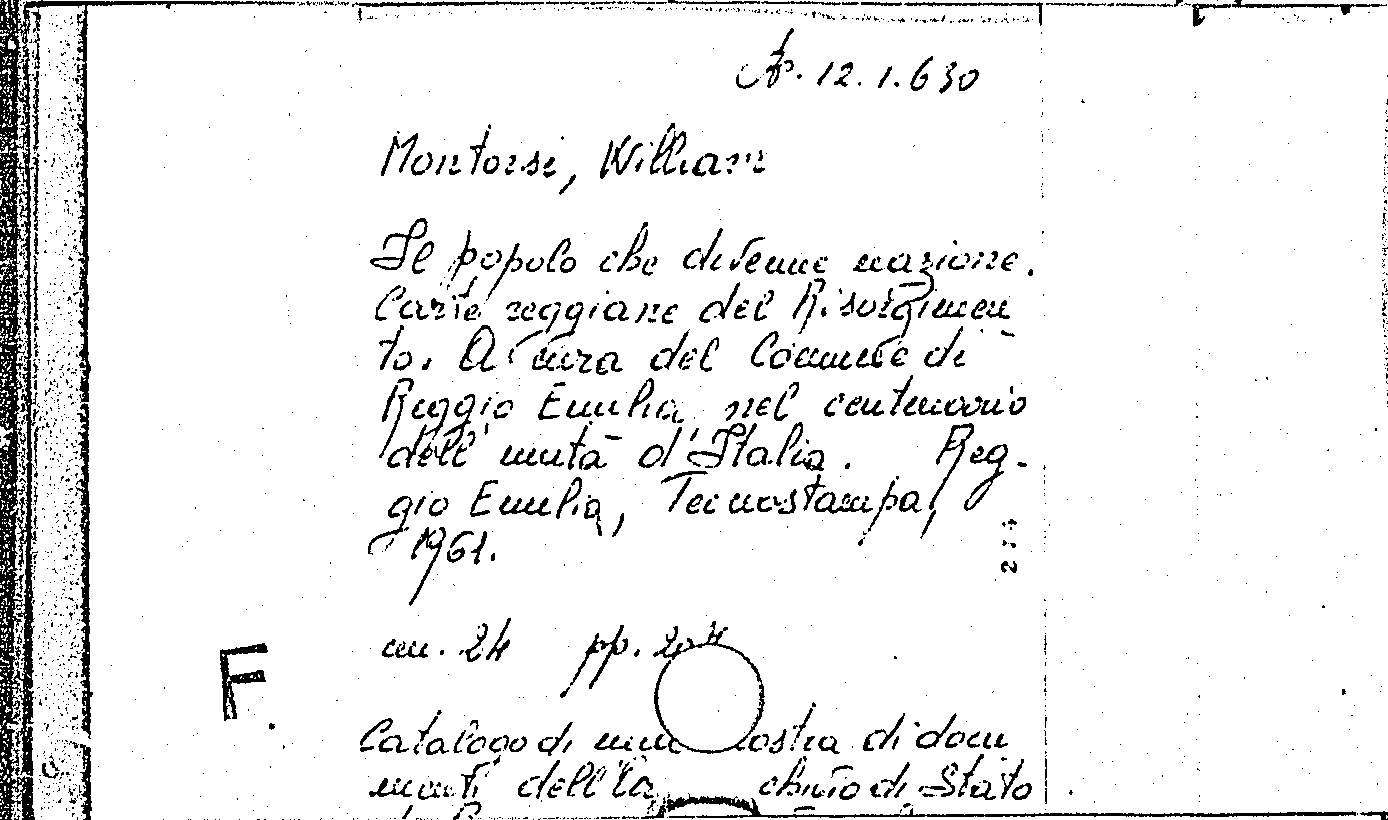 A. 12.1.630
Montorsi, William
Il popolo che divenne nazione.
Carte reggiane del Risorgimen
to. A cura del Comune di
Reggio Emilia nel centenario
dell'unità d'Italia. Reg-
gio Emilia, Tecnostampa,
1961.
274
cm. 24 pp. 204
F
Catalogo di una mostra di docu
menti dell' chivio di Stato